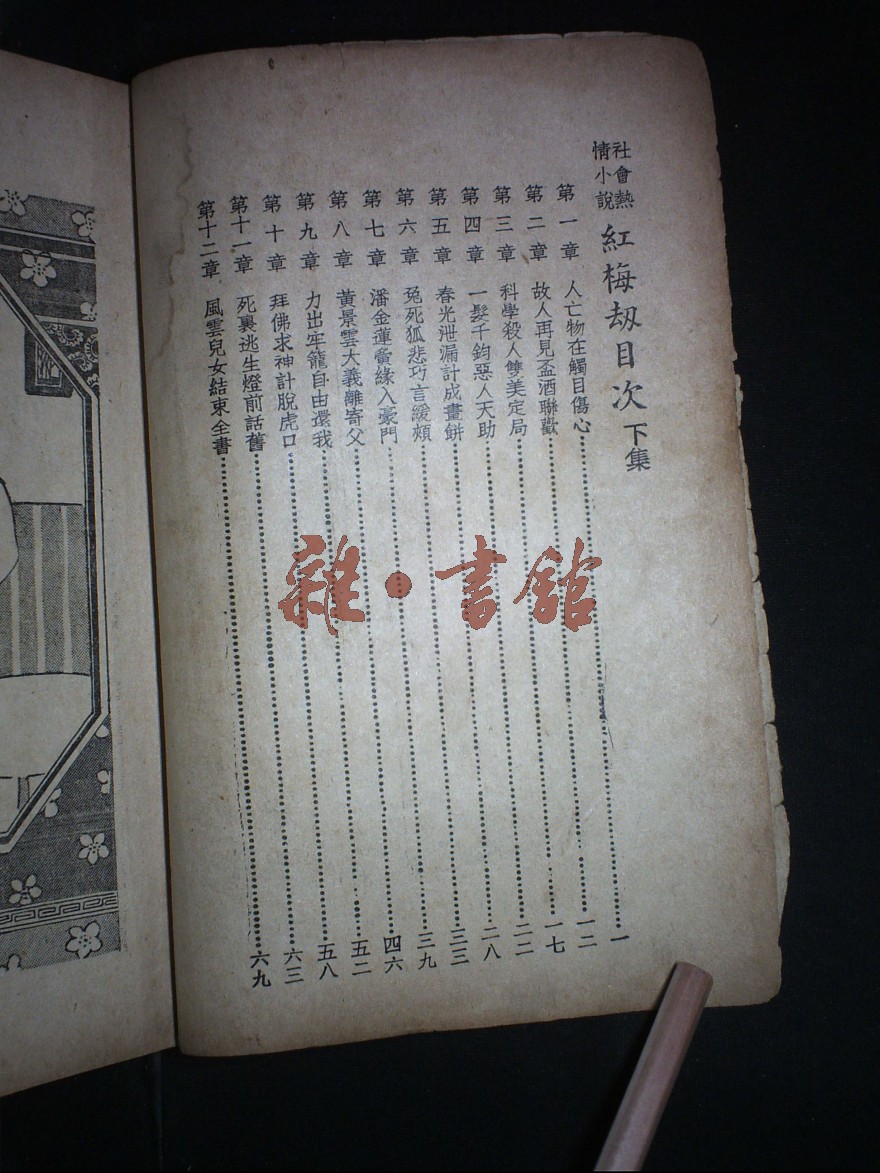 社會熱情小說 紅梅刼目次 下集
第一章 人亡物在觸目傷心 一
第二章 故人再見盃酒聯歡 一二
第三章 科學殺人雙美定局 一七
第四章 一髮千鈞惡人天助 二二
第五章 春光泄漏計成畫餅 二八
第六章 兔死狐悲巧言緩頰 三三
第七章 潘金蓮夤緣入豪門 三九
第八章 黃景雲大義離寄父 四六
第九章 力出牢籠自由還我 五二
第十章 拜佛求神計脫虎口 五八
第十一章 死裏逃生燈前話舊 六三
第十二章 風雲兒女結束全書 六九
雜·書館